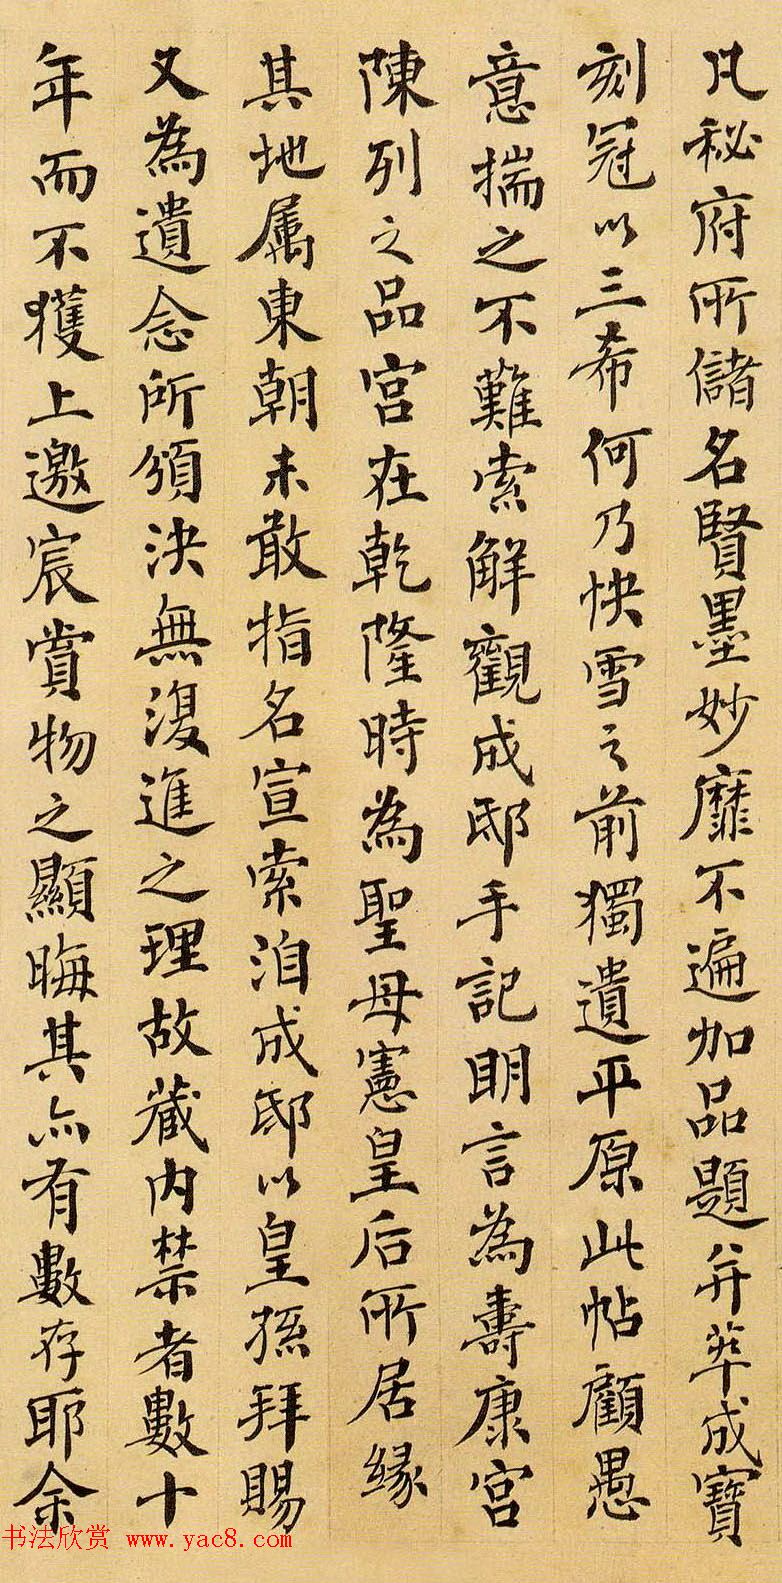 凡秘府所儲名賢墨妙靡不遍加品題并萃成寶
刻冠以三希何乃快雪之前獨遺平原此帖顧愚
意揣之不難索解觀成邸手記明言為壽康宮
陳列之品宮在乾隆時為聖母憲皇后所居緣
其地属東朝未敢指名宣索洎成邸以皇孫拜賜
又為遺念所頒決無復進之理故藏內禁者數十
年而不獲上邀宸賞物之顯晦其亦有數存耶余
书法欣赏 www.yac8.com